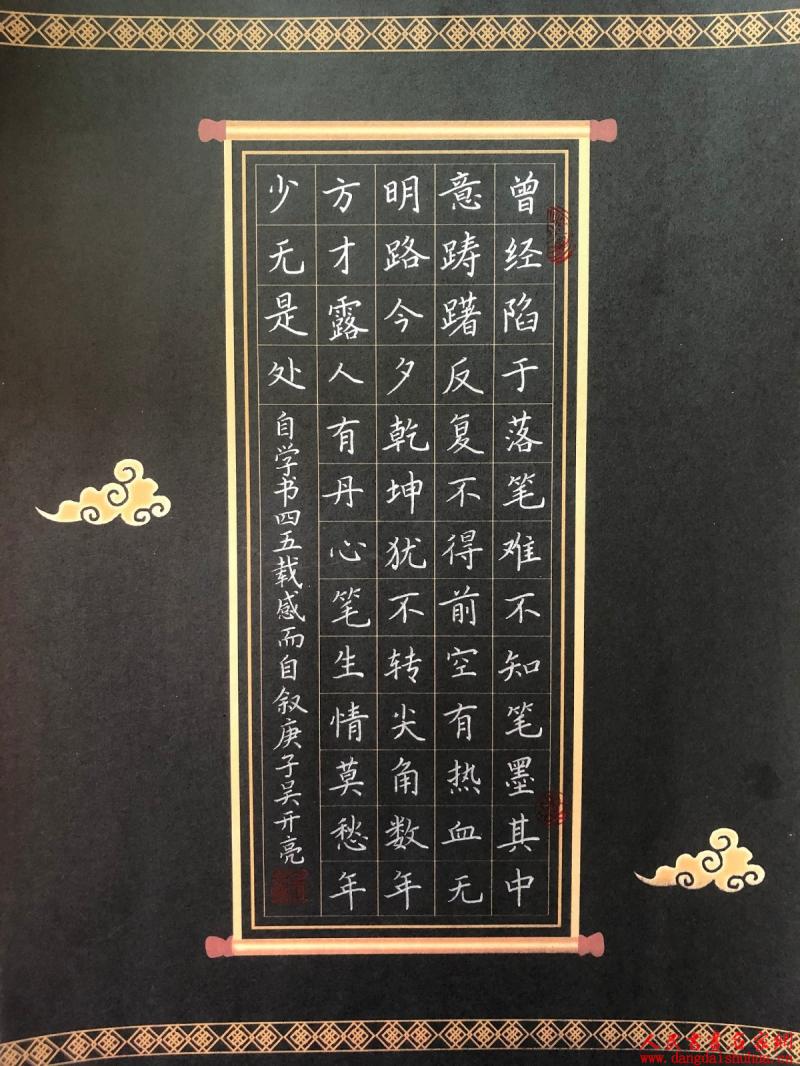 曾经陷于落笔难不知笔墨其中
意踌躇反复不得前空有热血无
明路今夕乾坤犹不转尖角数年
方才露人有丹心笔生情莫愁年
少无是处
自学书四五载感而自叙庚子吴开亮
www.dangdaishuhua.cn